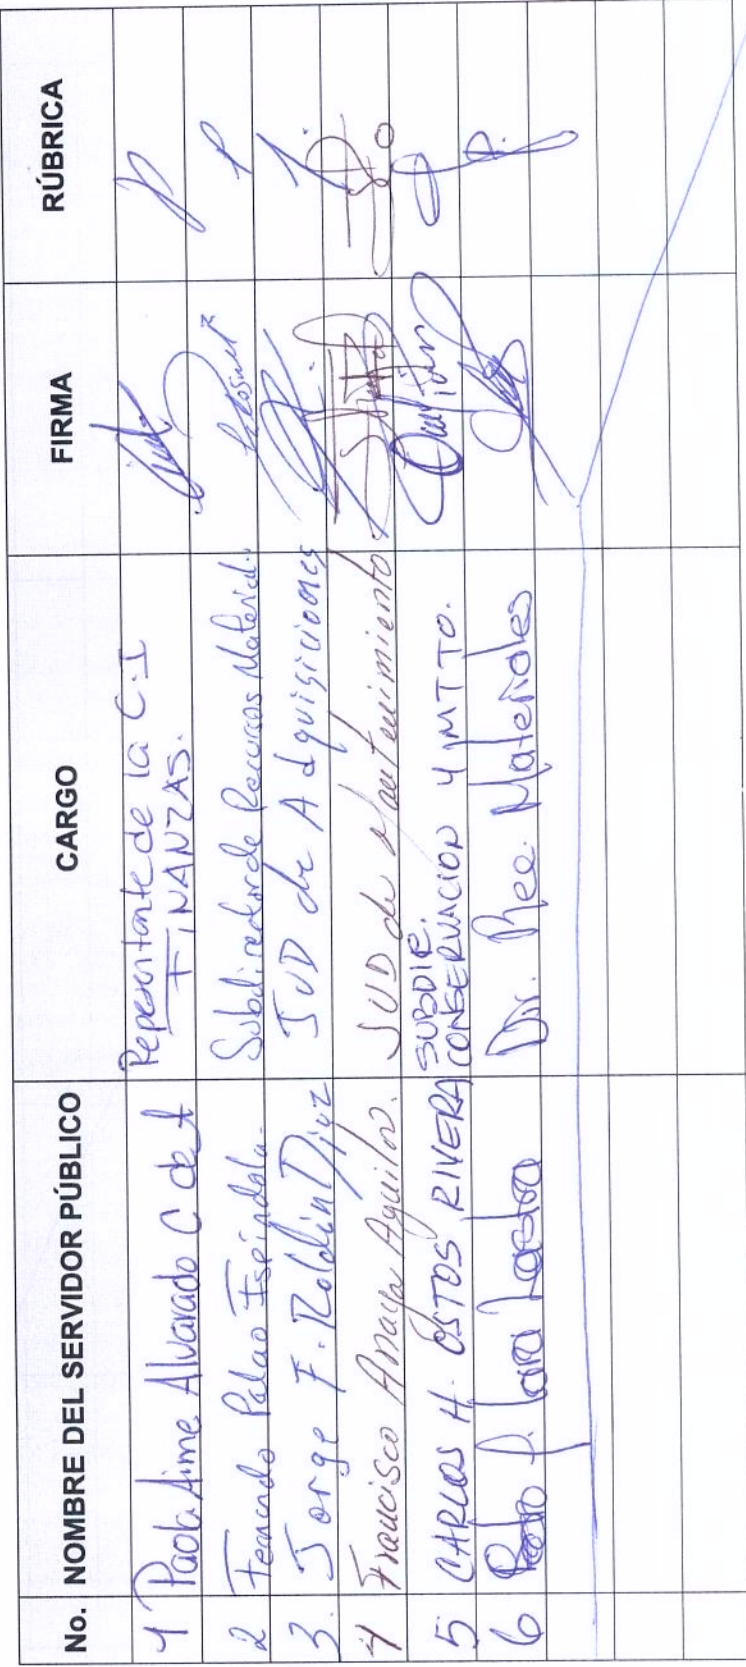 No. NOMBRE DEL SERVIDOR PÚBLICO CARGO FIRMA RÚBRICA
1 Paola Aime Alvarado C de A Representante de la C.I
FINANZAS.
2 Fernando Palao Espindola Subdirector de Recursos Material.
3. Jorge F. Roldán Díaz JUD de Adquisiciones
4 Francisco Anaya Aguilar. JUD de Mantenimiento
5 CARLOS H. OSTOS RIVERA SUBDIR.
CONSERVACION Y MTTO.
6 Lara Dir. Rec. Materiales